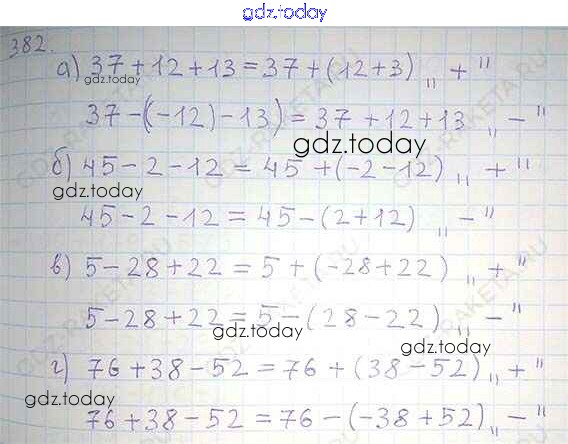 gdz.today
382.
а) 37+12+13=37+(12+3) „+"
gdz.today
37-(-12)-13)=37+12+13 „-"
gdz.today
б) 45-2-12=45+(-2-12) „+"
gdz.today
45-2-12=45-(2+12) „-"
в) 5-28+22=5+(-28+22) „+"
5-28+22=5-(28-22) „-"
gdz.today
г) 76+38-52=76+(38-52) „+"
gdz.today
76+38-52=76-(-38+52) „-"
gdz.today